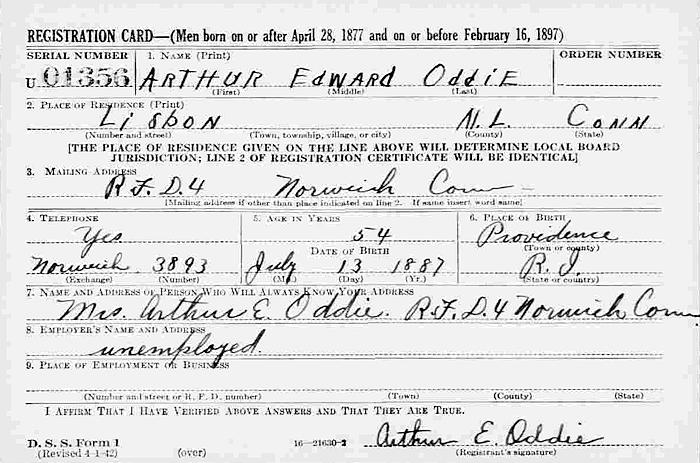 REGISTRATION CARD—(Men born on or after April 28, 1877 and on or before February 16, 1897)
SERIAL NUMBER 1. NAME (Print) ORDER NUMBER
U 01356 ARTHUR EDWARD ODDIE
(First) (Middle) (Last)
2. PLACE OF RESIDENCE (Print)
LISBON N.L. CONN
(Number and street) (Town, township, village, or city) (County) (State)
[THE PLACE OF RESIDENCE GIVEN ON THE LINE ABOVE WILL DETERMINE LOCAL BOARD
JURISDICTION; LINE 2 OF REGISTRATION CERTIFICATE WILL BE IDENTICAL]
3. MAILING ADDRESS
R.F.D.4 Norwich Conn
[Mailing address if other than place indicated on line 2. If same insert word same]
4. TELEPHONE 5. AGE IN YEARS 6. PLACE OF BIRTH
Yes 54 Providence
DATE OF BIRTH (Town or county)
Norwich 3893 July 13 1887 R.I.
(Exchange) (Number) (Mo.) (Day) (Yr.) (State or country)
7. NAME AND ADDRESS OF PERSON WHO WILL ALWAYS KNOW YOUR ADDRESS
Mrs. Arthur E. Oddie. R.F.D.4 Norwich Conn
8. EMPLOYER'S NAME AND ADDRESS
unemployed.
9. PLACE OF EMPLOYMENT OR BUSINESS
(Number and street or R. F. D. number) (Town) (County) (State)
I AFFIRM THAT I HAVE VERIFIED ABOVE ANSWERS AND THAT THEY ARE TRUE.
D. S. S. Form 1 16—21630-2 Arthur E. Oddie
(Revised 4-1-42) (over) (Registrant's signature)